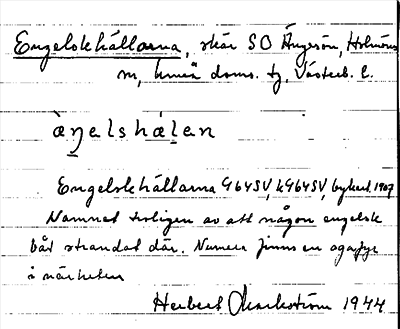 Engelskhällarna, skär SO Ängesön, Holmöns
sn, Umeå doms. tg, Västerb. l.
àŋelshálen
Engelskhällarna G64SV, LG64SV, bykart. 1907
Namnet troligen av att någon engelsk
båt strandat där. Numera finns en ågafyr
i närheten
Herbert Markström 1944